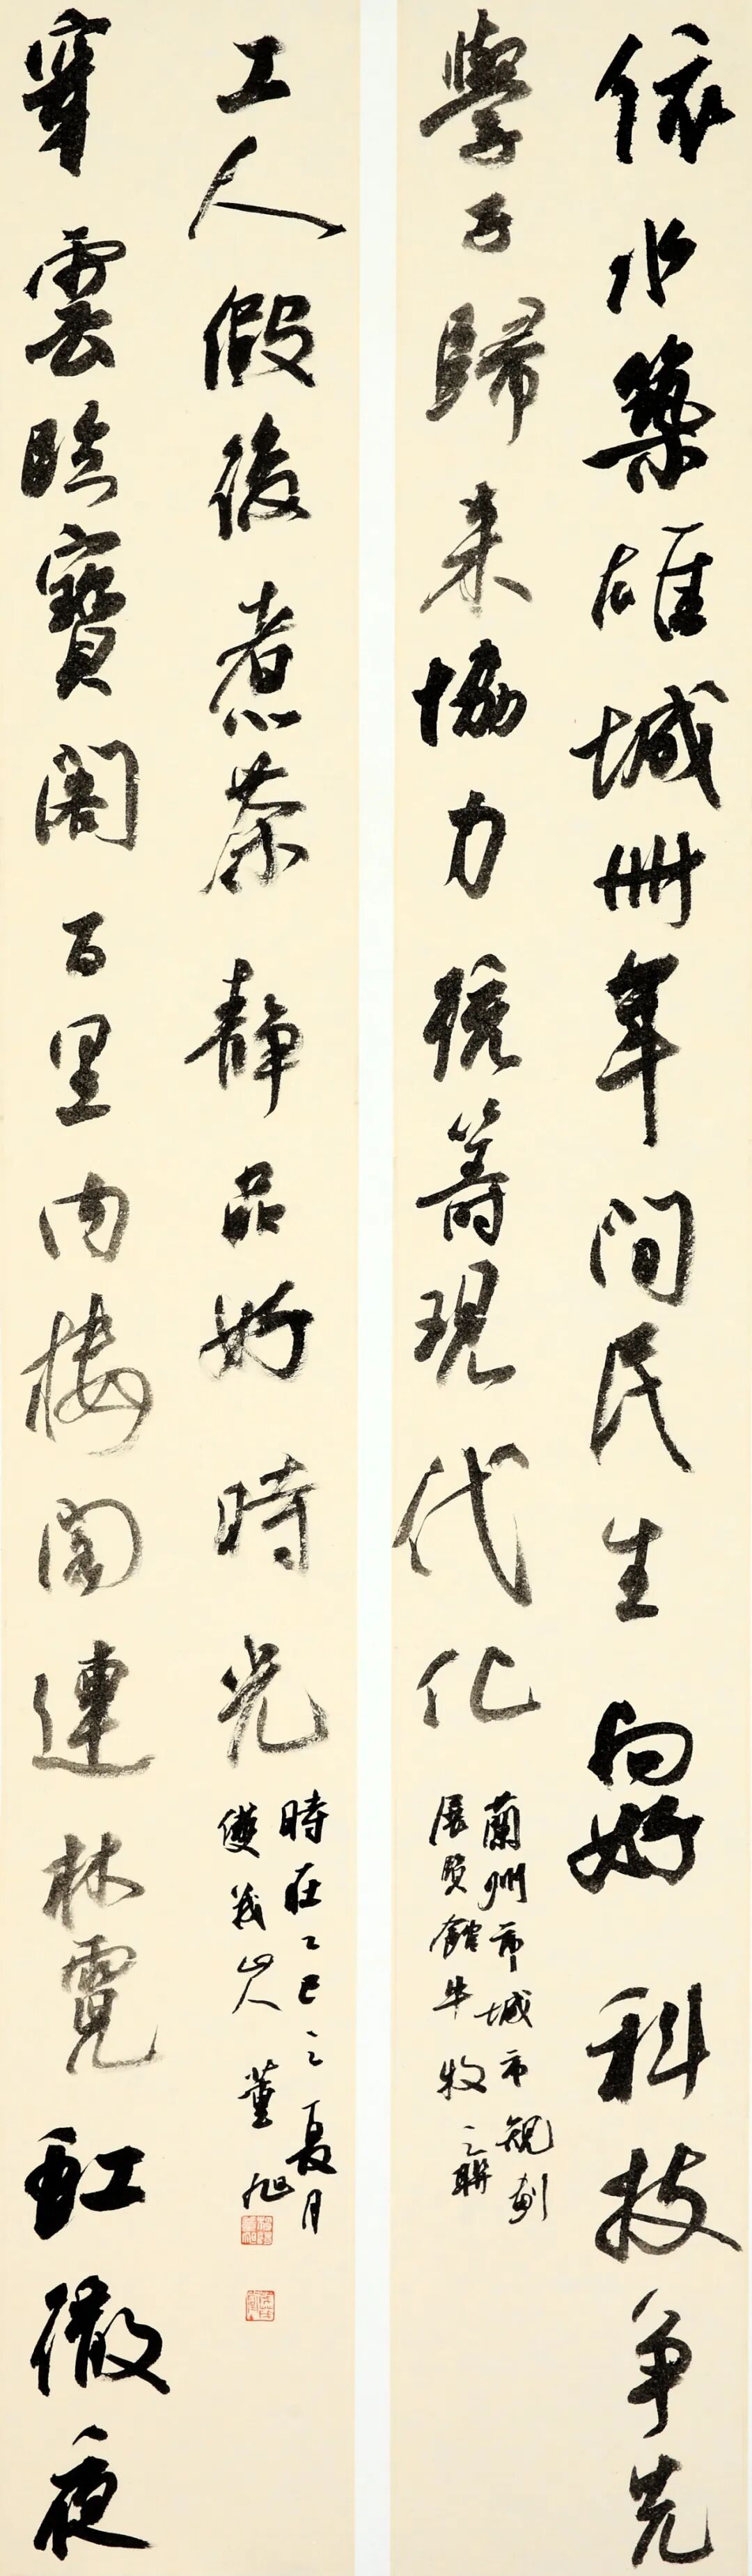 依水築雄城卌年間民生向好科技争先
學子歸来協力統籌現代化
蘭州市城市規劃
展覽館牛牧之聯
穿雲臨寶閣百里内樓閣連林霓虹徹夜
工人假後煮茶静品好時光
時在乙巳之夏月
山人董旭